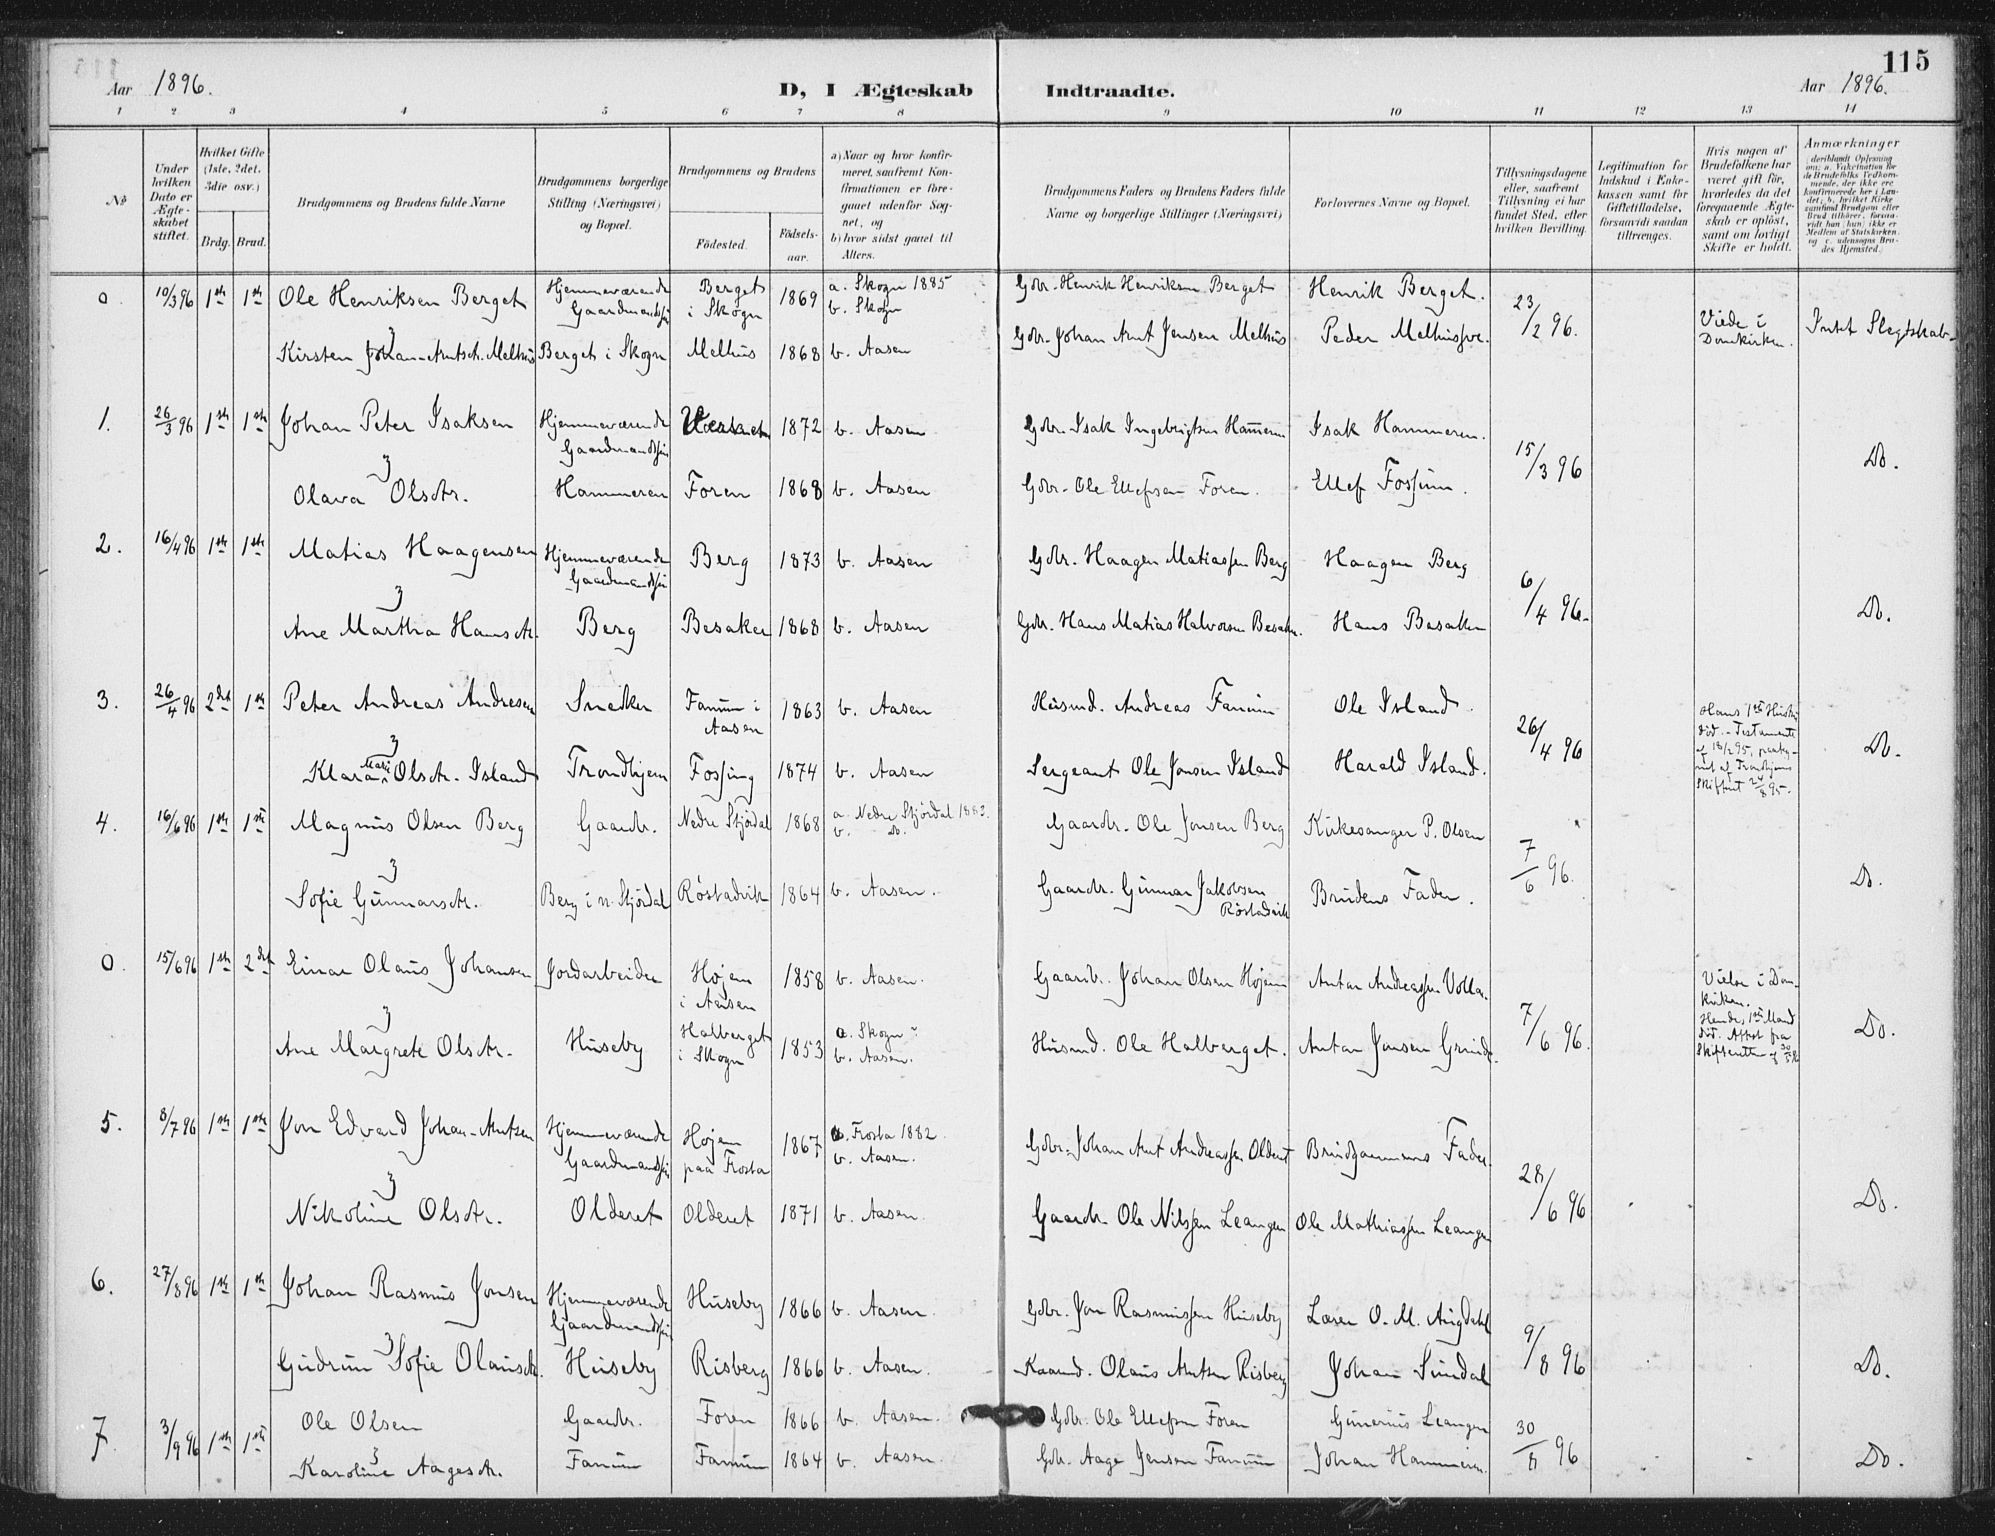 115
Aar 1896. D, I Ægteskab Indtraadte. Aar 1896.
1 2 3 4 5 6 7 8 9 10 11 12 13 14
No
Under hvilken Dato er Ægteskabet stiftet.
Hvilket Gifte (1ste, 2det, 3die osv.)
Brdg. Brud.
Brudgommens og Brudens fulde Navne
Brudgommens borgerlige Stilling (Næringsvei) og Bopæl.
Brudgommens og Brudens
Födested. Födsels-aar.
a) Naar og hvor konfirmeret, saafremt Konfirmationen er foregaaet udenfor Sognet, og
b) hvor sidst gaaet til Alters.
Brudgommens Faders og Brudens Faders fulde Navne og borgerlige Stillinger (Næringsvei)
Forlovernes Navne og Bopæl.
Tillysningsdagene eller, saafremt Tillysning ei har fundet Sted, efter hvilken Bevilling.
Legitimation for Indskud i Enkekassen samt for Giftetilladelse, forsaavidt saadan tiltrænges.
Hvis nogen af Brudefolkene har været gift för, hvorledes da det foregaaende Ægteskab er oplöst, samt om lovligt Skifte er holdt.
Anmærkninger
0. 10/3 96 1ste 1ste Ole Henriksen Berget Hjemmeværende Gaardmandssøn Berget i Skogn 1869 a. Skogn 1885 b. Skogn Gdbr. Henrik Henriksen Berget Henrik Berget. 23/2 96. Viede i Domkirken. Intet Slegtskab.
Kirsten Johan-Arntsdtr. Melhus Berget i Skogn Melhus 1868 b. Aasen Gdbr. Johan Arnt Jensen Melhus Peder Melhus
1. 26/3 96 1ste 1ste Johan Peter Isaksen Hjemmeværende Gaardmandssøn 1872 b. Aasen Gdbr. Isak Ingebrigtsen Hammeren Isak Hammeren. 15/3 96 Do.
Olava Olsdtr. Hammeren Foren 1868 b. Aasen Gdbr. Ole Ellefsen Foren. Ellef Fossum.
2. 16/4 96 1ste 1ste Matias Haagensen Hjemmeværende Gaardmandssøn Berg 1873 b. Aasen Gdbr. Haagen Matiassen Berg Haagen Berg 6/4 96. Do.
Ane Martha Hansdtr. Berg Besaker 1868 b. Aasen Gdbr. Hans Matias Halvorsen Besaker. Hans Besaker
3. 26/4 96 2det 1ste Peter Andreas Andresen Snedker Fanum i Aasen 1863 b. Aasen Husmd. Andreas Fanum Ole Island. 26/4 96 Hans 1ste Hustru død. - Testamente af 18/2 95, Trondhjems Skifteret 24/8 95. Do.
Klara Marie Olsdtr. Island Trondhjem Fossing 1874 b. Aasen Sergeant Ole Jonsen Island Harald Island.
4. 16/6 96 1ste 1ste Magnus Olsen Berg Gaardbr. Nedre Stjørdal 1868 a. Nedre Stjørdal 1883. b. Do. Gaardbr. Ole Jonsen Berg Kirkesanger P. Olsen 7/6 96. Do.
Sofie Gunnarsdtr. Berg i n. Stjørdal Røstadvik 1864 b. Aasen. Gaardbr. Gunnar Jakobsen Røstadvik Brudens Fader.
0. 15/6 96 1ste 2det Einar Olaus Johansen Jordarbeider Højem i Aasen 1858 b. Aasen. Gaardbr. Johan Olsen Højem Anton Andreassen Vollan. 7/6 96. Vielse i Domkirken. Hendes 1ste Mand død. Attest fra Skifteretten af 30/5 96 Do.
Ane Margrete Olsdtr. Huseby Halberget i Skogn 1853 a. Skogn b. Aasen. Husmd. Ole Halberget. Anton Jonsen Grinde
5. 8/7 96 1ste 1ste Jon Edvard Johan-Arntsen Hjemmeværende Gaardmandssøn Højem paa Frosta 1867 a. Frosta 1882. b. Aasen. Gdbr. Johan Arnt Andreassen Olderet Brudgommens Fader. 28/6 96 Do.
Nikoline Olsdtr. Olderet Olderet 1871 b. Aasen. Gaardbr. Ole Nilssen Leangen Ole Mathiassen Leangen
6. 27/8 96 1ste 1ste Johan Rasmus Jonsen Hjemmeværende Gaardmandssøn Huseby 1866 b. Aasen. Gdbr. Jon Rasmussen Huseby Lærer O. M. Augdahl 9/8 96 Do.
Gudrun Sofie Olausdtr. Huseby Risberg 1866 b. Aasen. Kaarmd. Olaus Arntsen Risberg Johan Sundal
7. 3/9 96 1ste 1ste Ole Olsen Gaardbr. Foren 1866 b. Aasen. Gdbr. Ole Ellefsen Foren Gunerius Leangen 30/8 96 Do.
Karoline Aagesdtr. Fanum Fanum 1864 b. Aasen. Gdbr. Aage Jensen Fanum Johan Hammeren.